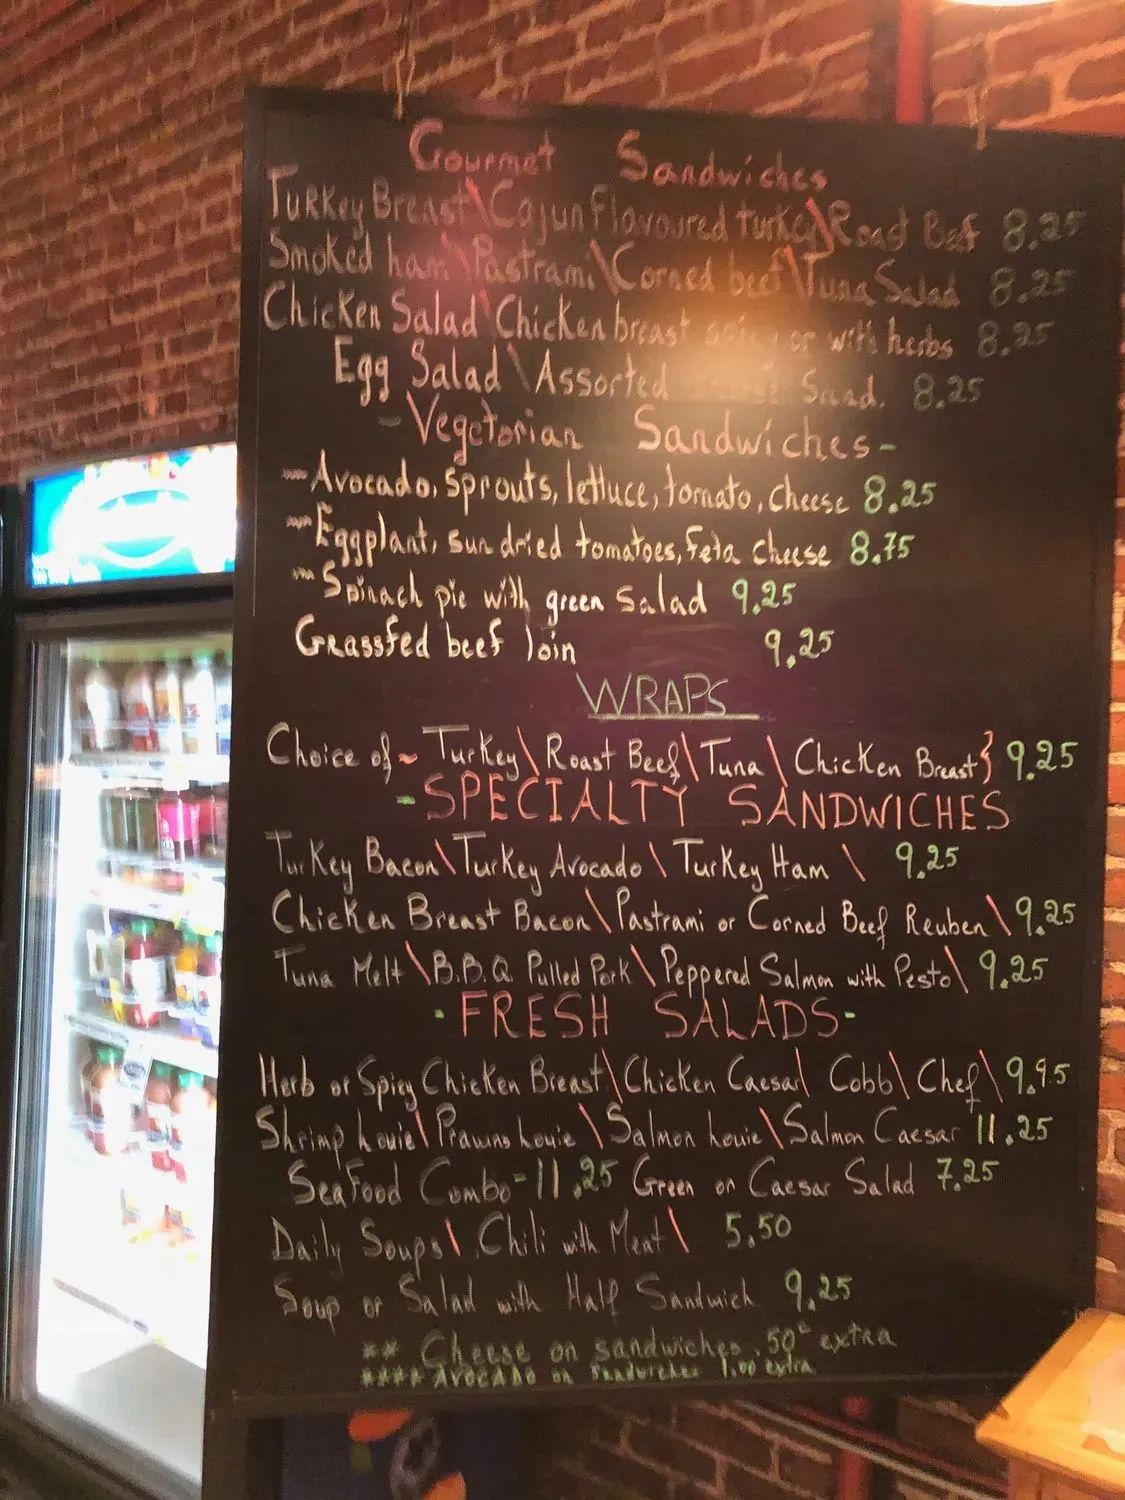 Gourmet Sandwiches
Turkey Breast\Cajun Flavoured turkey\Roast Beef 8.25
Smoked ham\Pastrami\Corned beef\Tuna Salad 8.25
Chicken Salad\Chicken breast spicy or with herbs 8.25
Egg Salad\Assorted Sand. 8.25
- Vegetarian Sandwiches -
Avocado, sprouts, lettuce, tomato, cheese 8.25
Eggplant, sun dried tomatoes, feta cheese 8.75
Spinach pie with green salad 9.25
Grassfed beef loin 9.25
WRAPS
Choice of ~ Turkey\Roast Beef\Tuna\Chicken Breast} 9.25
- SPECIALTY SANDWICHES
Turkey Bacon\Turkey Avocado\Turkey Ham\ 9.25
Chicken Breast Bacon\Pastrami or Corned Beef Reuben\ 9.25
Tuna Melt\B.B.Q. Pulled Pork\Peppered Salmon with Pesto\ 9.25
- FRESH SALADS -
Herb or Spicy Chicken Breast\Chicken Caesar\Cobb\Chef\ 9.95
Shrimp Louie\Prawns Louie\Salmon Louie\Salmon Caesar 11.25
Seafood Combo - 11.25 Green or Caesar Salad 7.25
Daily Soups\Chili with Meat\ 5.50
Soup or Salad with Half Sandwich 9.25
** Cheese on sandwiches .50¢ extra
**** Avocado on Sandwiches 1.00 extra